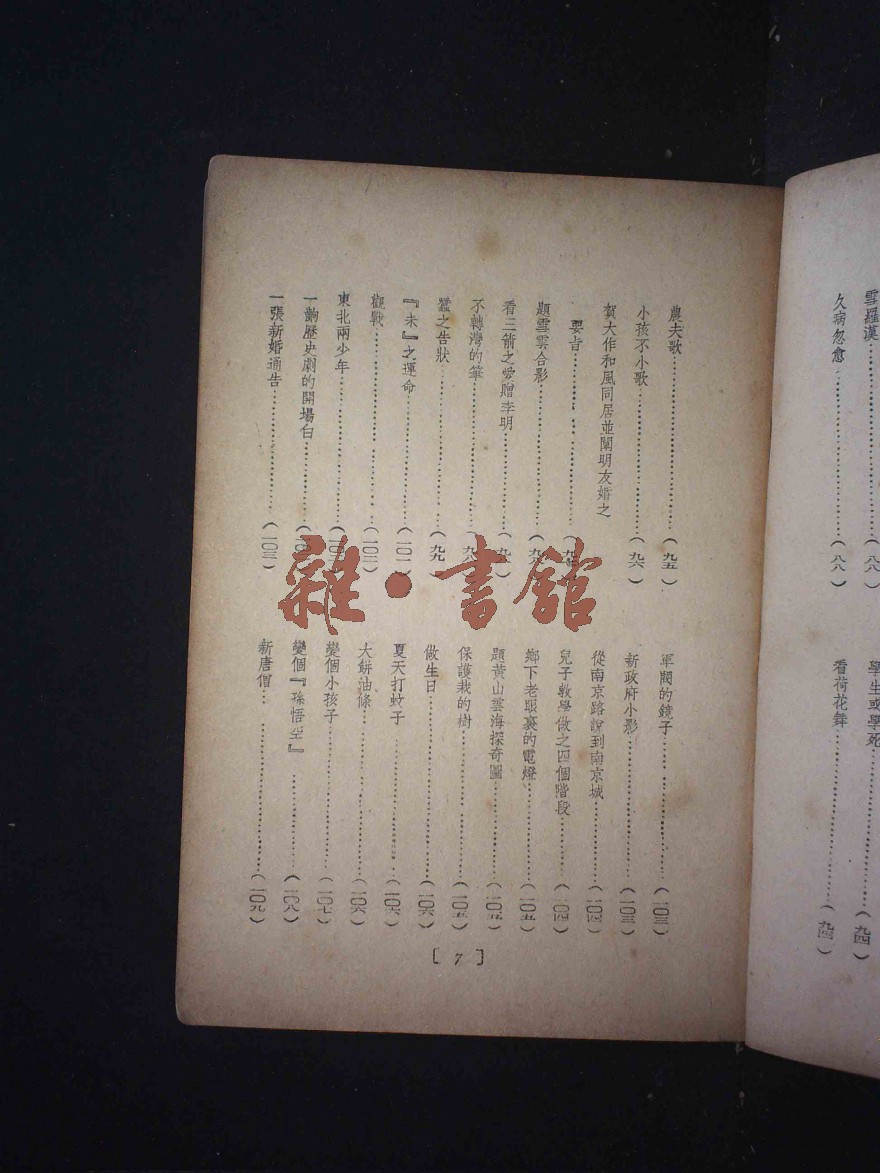 雪羅漢……(八八)
久病忽愈……(八八)
學生或學死……(九四)
看荷花舞……(九四)
農夫歌……(九五)
小孩不小歌……(九六)
賀大作和風同居並闡明友婚之
要旨……
題雪雲合影……
看三箭之愛贈李明……
不轉灣的筆……
蠶之告狀……(九九)
『未』之運命……(一〇一)
觀戰……(一〇二)
東北兩少年……
一齣歷史劇的開場白……
一張新婚通告……(一〇三)
軍閥的鏡子……(一〇三)
新政府小影……(一〇三)
從南京路說到南京城……(一〇四)
兒子教學做之四個階段……(一〇四)
鄉下老眼裏的電燈……(一〇五)
題黃山雲海探奇圖……(一〇五)
保護栽的樹……(一〇五)
做生日……(一〇六)
夏天打蚊子……(一〇六)
大餅油條……(一〇六)
變個小孩子……(一〇七)
變個『孫悟空』……(一〇八)
新唐僧……(一〇九)
[7]
雜·書館